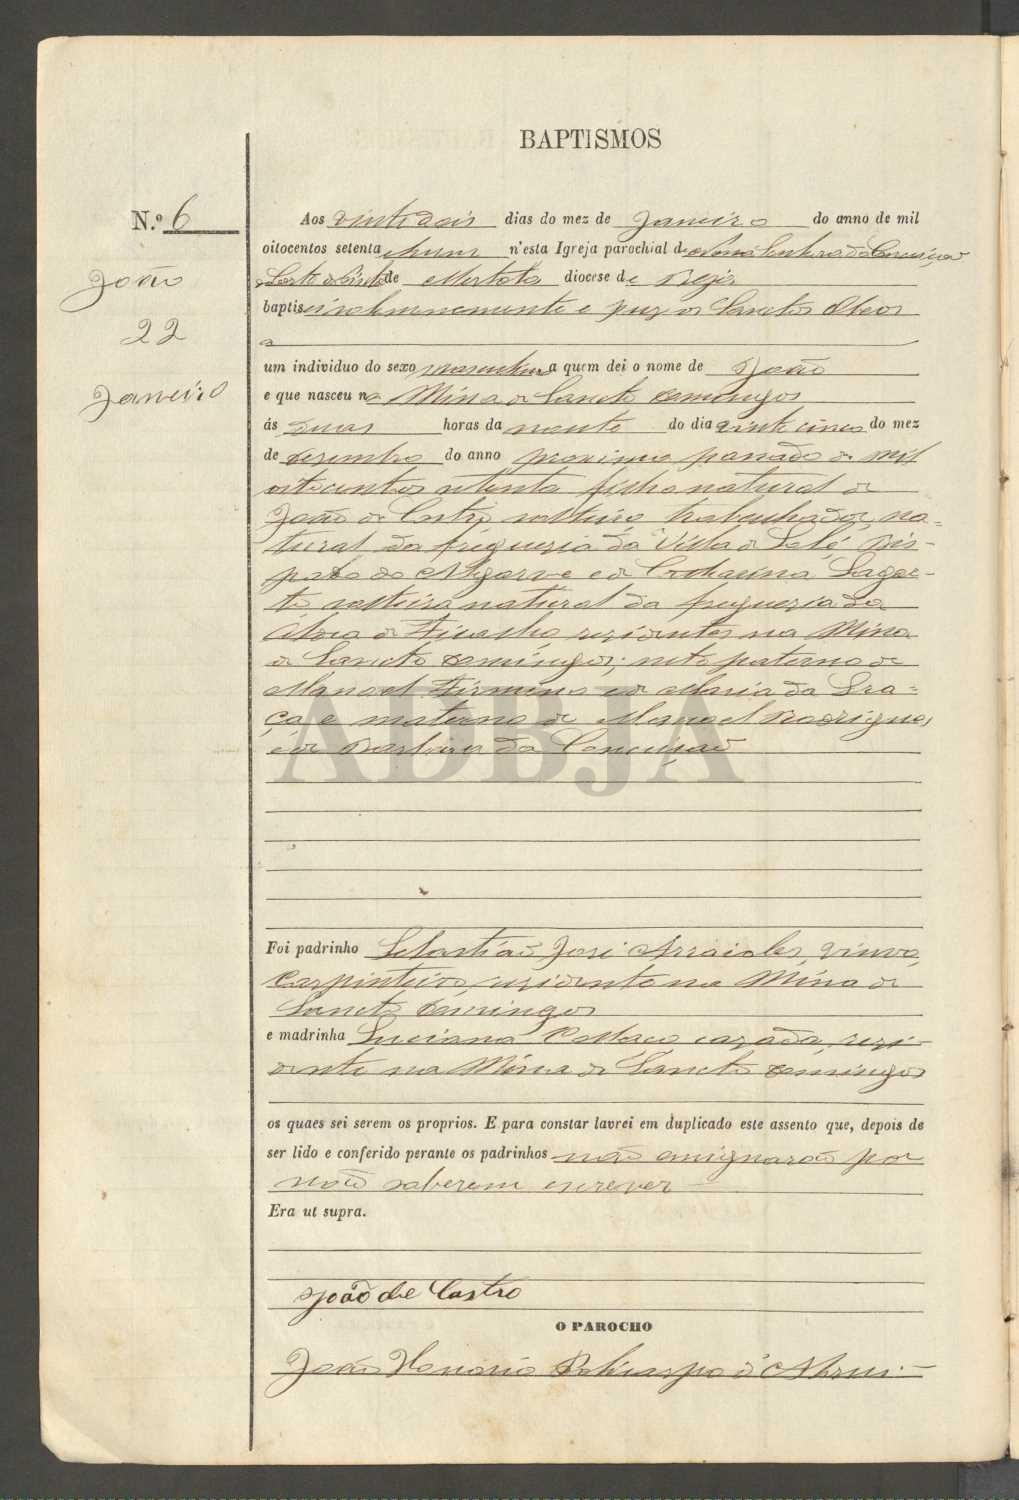 BAPTISMOS
N.º 6
João
22
Janeiro
Aos vinte dois dias do mez de Janeiro do anno de mil
oitocentos setenta e hum n'esta Igreja parochial de Nossa Senhora da Conceição
de Mertola diocese de Beja
baptisei solemnemente e puz os Sanctos Oleos
a
um individuo do sexo masculino a quem dei o nome de João
e que nasceu na Mina de Sancto Domingos
ás duas horas da noute do dia vinte cinco do mez
de Dezembro do anno proximo passado de mil
oitocentos setenta filho natural de
João de Castro solteiro trabalhador, na=
tural da freguezia da Villa de Loulé Bis-
pado do Algarve e de Lagar-
to solteira natural da freguezia da
de residentes na Mina
de Sancto Domingos; neto paterno de
Manoel Firmino e de Maria da Gra=
ça, e materno de Manoel Rodrigues
e de Barbara da Conceição
Foi padrinho Sebastião José Arraioles, viuvo,
carpinteiro, rezidente na Mina de
Sancto Domingos
e madrinha Luciana cazada, rezi-
dente na Mina de Sancto Domingos
os quaes sei serem os proprios. E para constar lavrei em duplicado este assento que, depois de
ser lido e conferido perante os padrinhos não assignarão por
não saberem escrever
Era ut supra.
João de Castro
O PAROCHO
João Honorio Policarpo d'Abreu
ADBJA